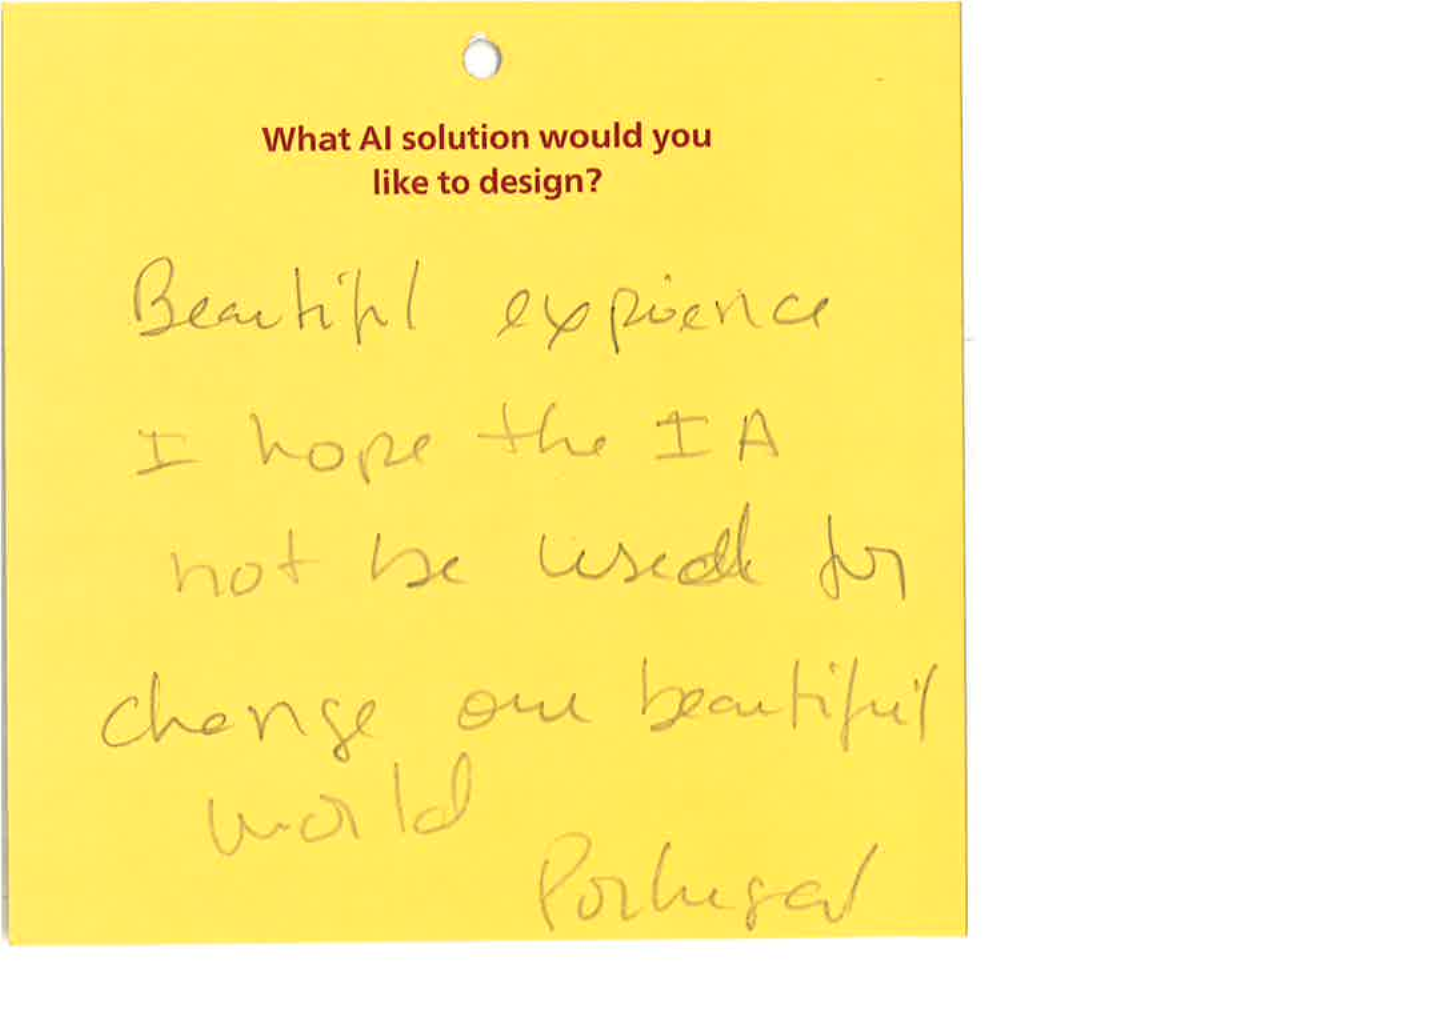 What AI solution would you
like to design?
Beautiful expirience
I hope the IA
not be used for
change our beautiful
world
Portugal